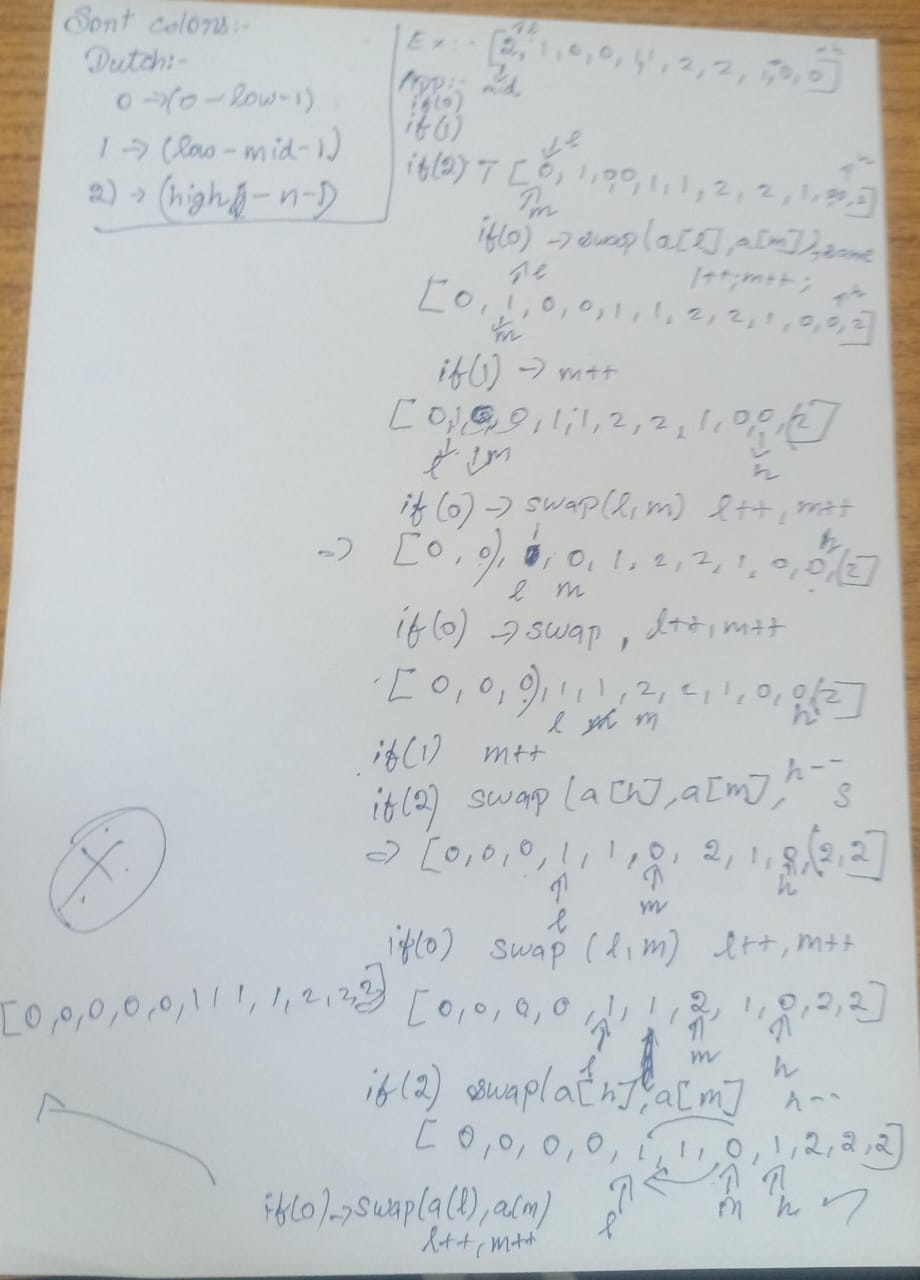 Sort colors:-
Dutch:-
0 → (0 - low-1)
1 → (low - mid-1)
2) → (high - n-1)
Ex:- [2, 1, 0, 0, 1, 1, 2, 2, 1, 0, 0]
mid
App:-
if(0)
if(1)
if(2) T [0, 1, 0,0, 1, 1, 2, 2, 1, 0, 2]
l
h
m
if(0) → swap(a[l], a[m]), same
l++; m++;
l
h
[0, 1, 0, 0, 1, 1, 2, 2, 1, 0, 0, 2]
m
if(1) → m++
[0, 1, 0, 0, 1, 1, 2, 2, 1, 0, 0, (2]
l m h
if(0) → swap(l, m) l++, m++
h
⇒ [0, 0), 1, 0, 1, 2, 2, 1, 0, 0, (2]
l m
if(0) → swap, l++, m++
[0, 0, 0), 1, 1, 2, 2, 1, 0, 0, (2]
l m m h
if(1) m++
if(2) swap (a[h], a[m], h-- s
⇒ [0, 0, 0, 1, 1, 0, 2, 1, 0, (2, 2]
l m h
if(0) swap (l, m) l++, m++
[0, 0, 0, 0, 0, 1 1 1, 1, 2, 2, 2]
[0, 0, 0, 0, 1, 1, 2, 1, 0, 2, 2]
l m h
if(2) swap(a[h], a[m] h--
[0, 0, 0, 0, 1, 1, 0, 1, 2, 2, 2]
l m h
if(0) → swap(a(l), a(m)
l++, m++